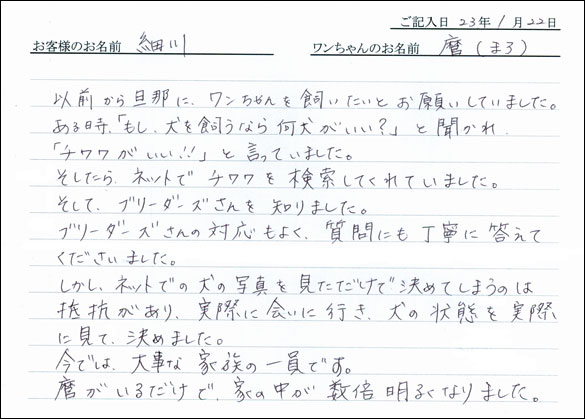 ご記入日 23年 1月22日
お客様のお名前 細川 ワンちゃんのお名前 麿(まろ)
以前から旦那に、ワンちゃんを飼いたいとお願いしていました。
ある時、「もし、犬を飼うなら何犬がいい?」と聞かれ、
「チワワがいい!!」と言っていました。
そしたら、ネットでチワワを検索してくれていました。
そして、ブリーダーズさんを知りました。
ブリーダーズさんの対応もよく、質問にも丁寧に答えて
くださいました。
しかし、ネットでの犬の写真を見ただけで決めてしまうのは
抵抗があり、実際に会いに行き、犬の状態を実際
に見て、決めました。
今では、大事な家族の一員です。
麿がいるだけで、家の中が数倍明るくなりました。